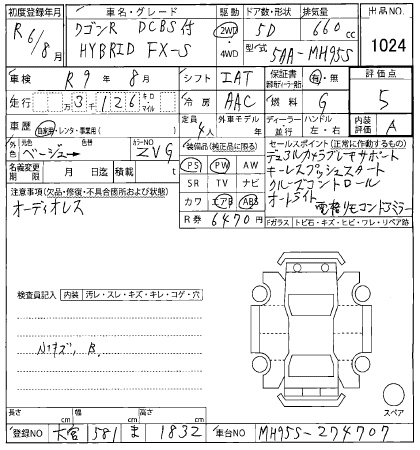 初度登録年/月 車名・グレード 駆動 ドア数・形状 排気量 出品NO.
R 6/8月 ワゴンR DCBS付 2WD 5D 660 cc 1024
HYBRID FX-S 4WD 型式 5AA-MH95S
車検 R 9年 8月 シフト IAT 保証書 有・無 評価点 5
走行 万 3千 126 キロ マイル 冷房 AAC 燃料 G
車歴 自家用・レンタ・事業用 定員 4人 外車モデル 年 ディーラー 並行 ハンドル 左・右 内装評価 A
外色 元色 ベージュー 色替 カラーNO ZVG
装備品 (純正品に限る) セールスポイント (正常に作動するもの)
PS PW AW デュアルカメラブレーキサポート
名義変更期限 月 日迄 積載 t キーレスプッシュスタート
SR TV ナビ クルーズコントロール
注意事項 (欠品・修復・不具合箇所および状態) カワ エアB ABS オートライト
オーディオレス R券 6470円 電格リモコンドアミラー
Fガラス トビ石・キズ・ヒビ・ワレ・リペア跡
検査員記入 内装 汚レ・スレ・キズ・キレ・コゲ・穴
小キズ, B.
長さ cm 幅 cm 高さ cm スペア
登録NO 大宮 581 ま 1832 車台NO MH95S-274707